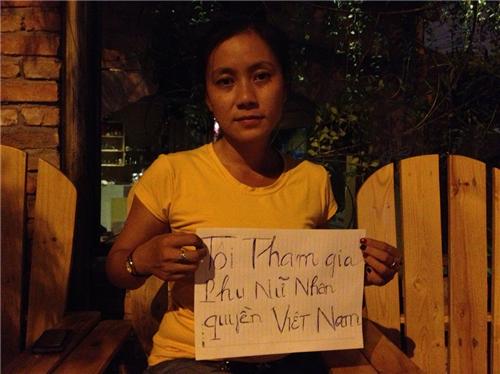 Tôi Tham gia
Phụ Nữ Nhân
quyền Việt Nam